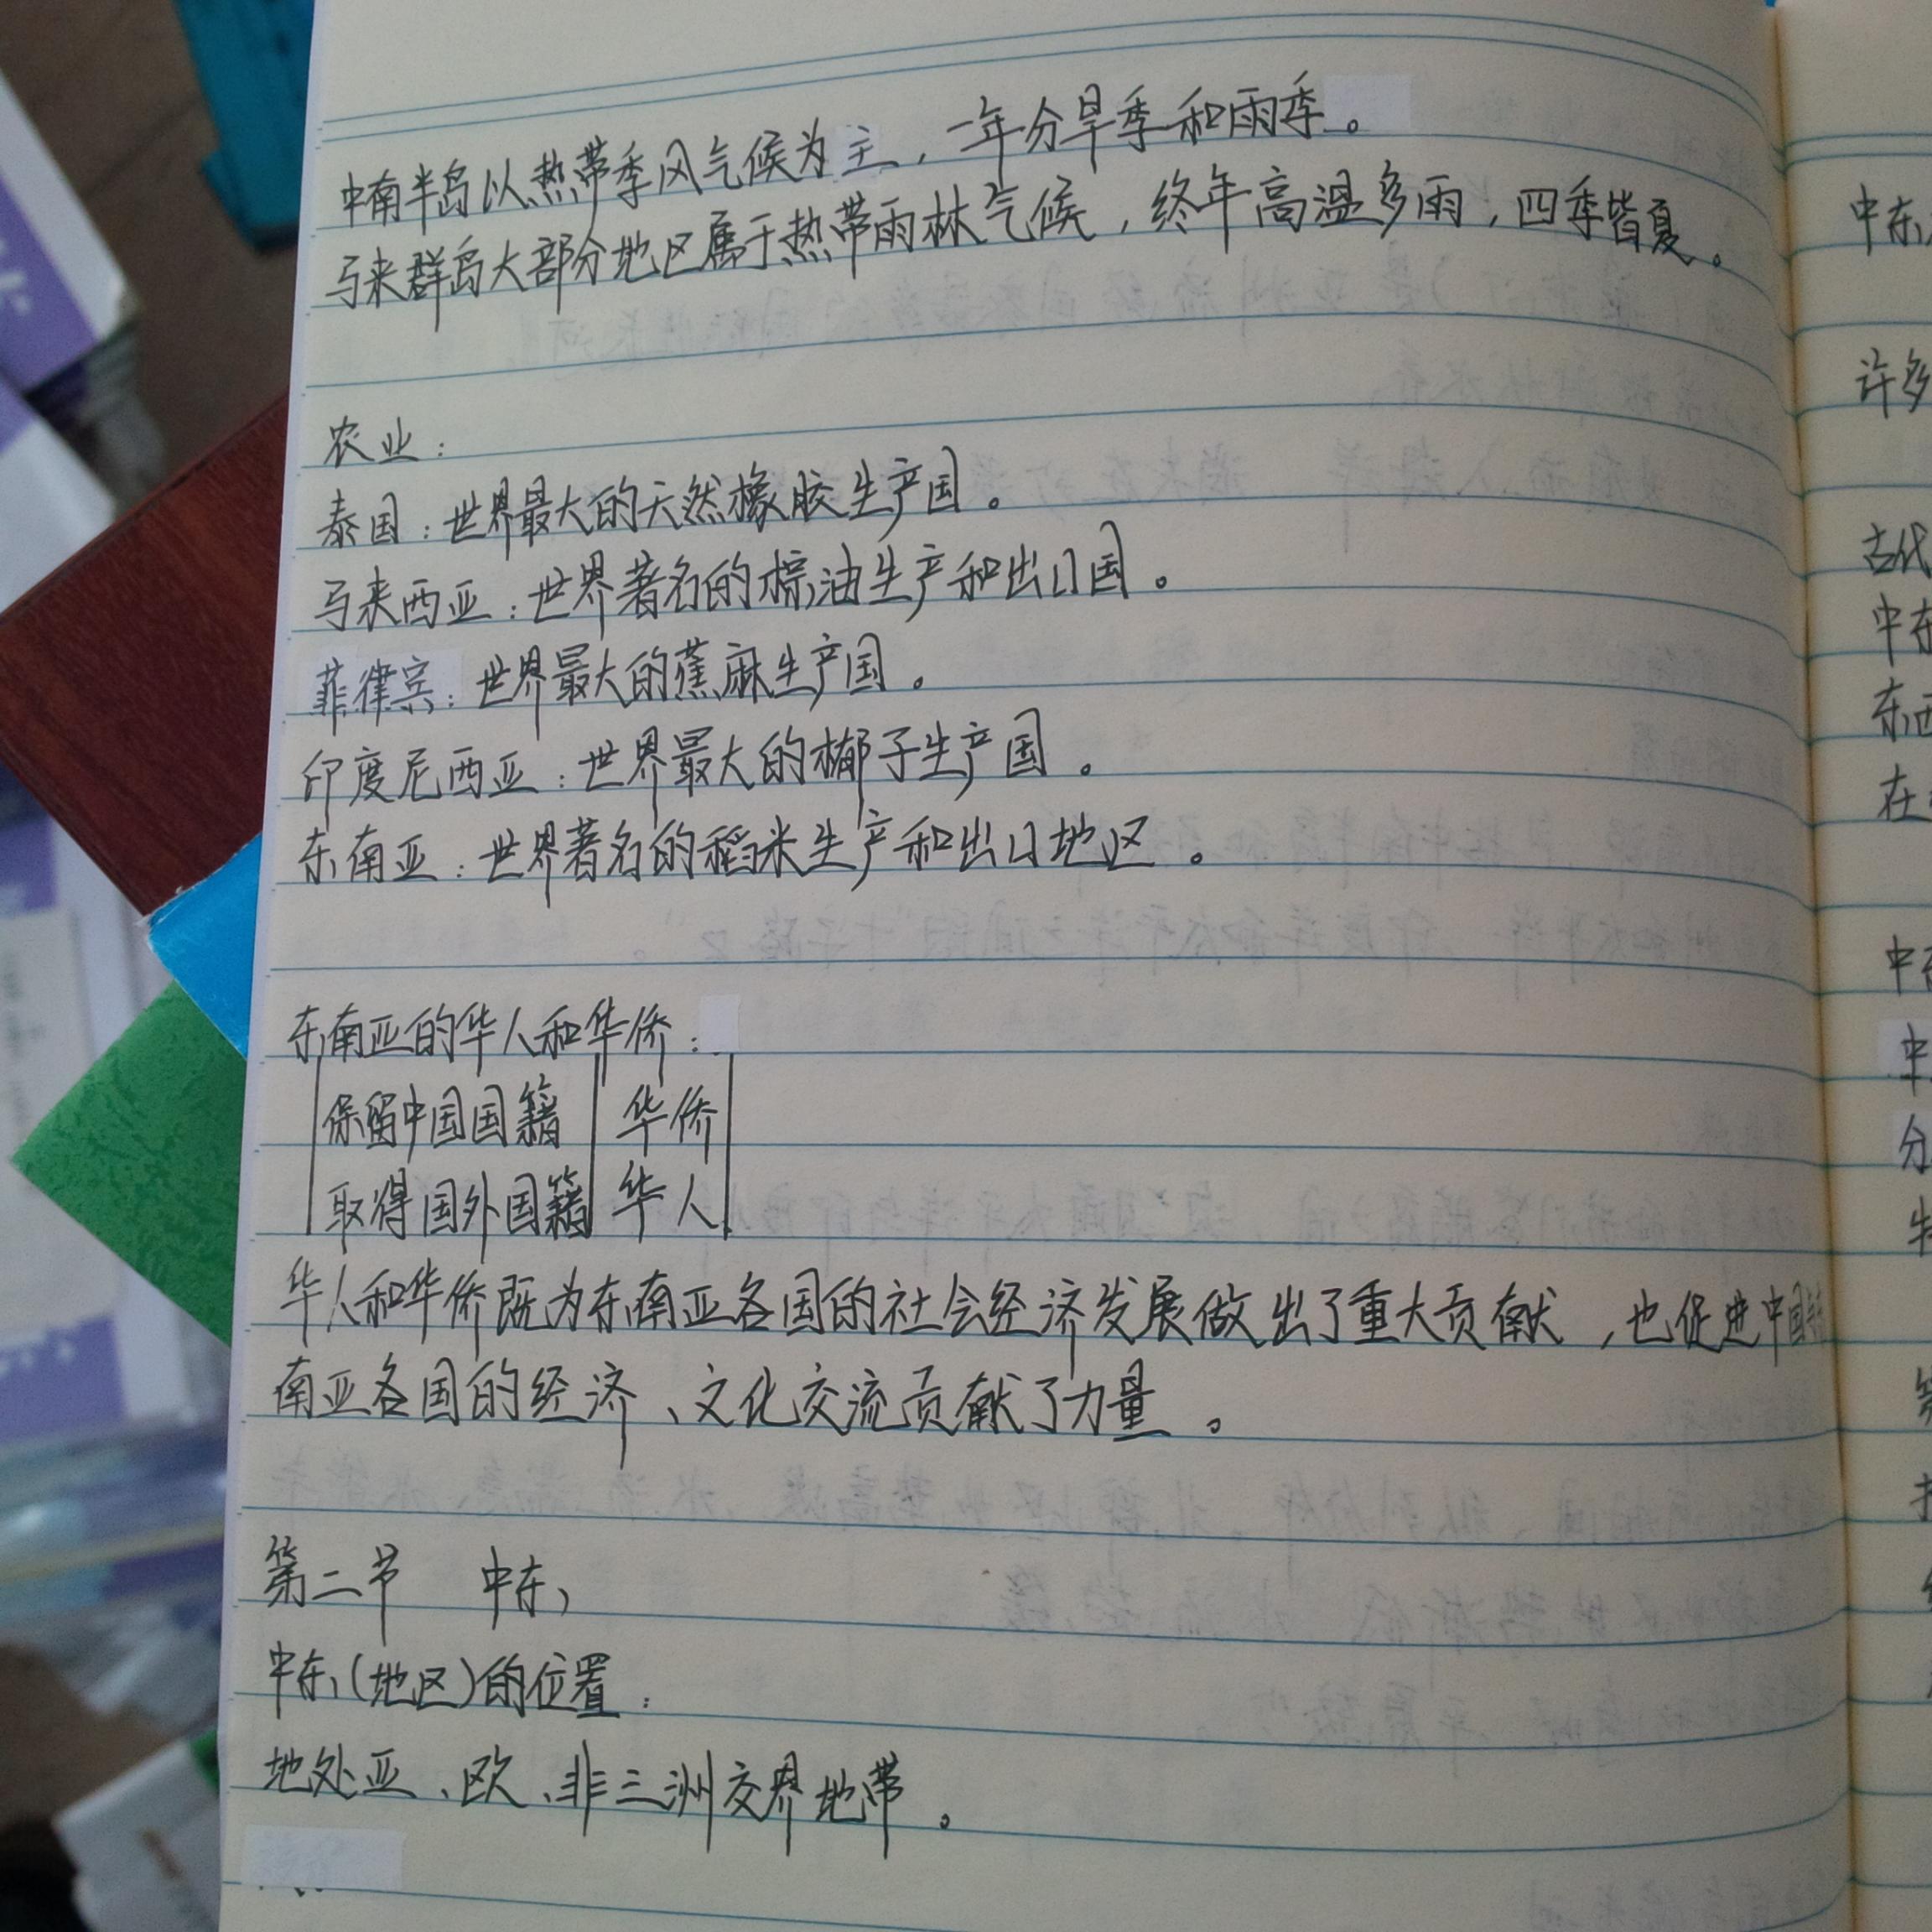 中南半岛以热带季风气候为主，一年分旱季和雨季。
马来群岛大部分地区属于热带雨林气候，终年高温多雨，四季皆夏。
农业：
泰国：世界最大的天然橡胶生产国。
马来西亚：世界著名的棕油生产和出口国。
菲律宾：世界最大的蕉麻生产国。
印度尼西亚：世界最大的椰子生产国。
东南亚：世界著名的稻米生产和出口地区。
东南亚的华人和华侨：
保留中国国籍 华侨
取得国外国籍 华人
华人和华侨既为东南亚各国的社会经济发展做出了重大贡献，也促进中国
南亚各国的经济、文化交流贡献了力量。
第二节 中东
中东(地区)的位置：
地处亚、欧、非三洲交界地带。
中东
许多
古代
中东
东西
在
中
分